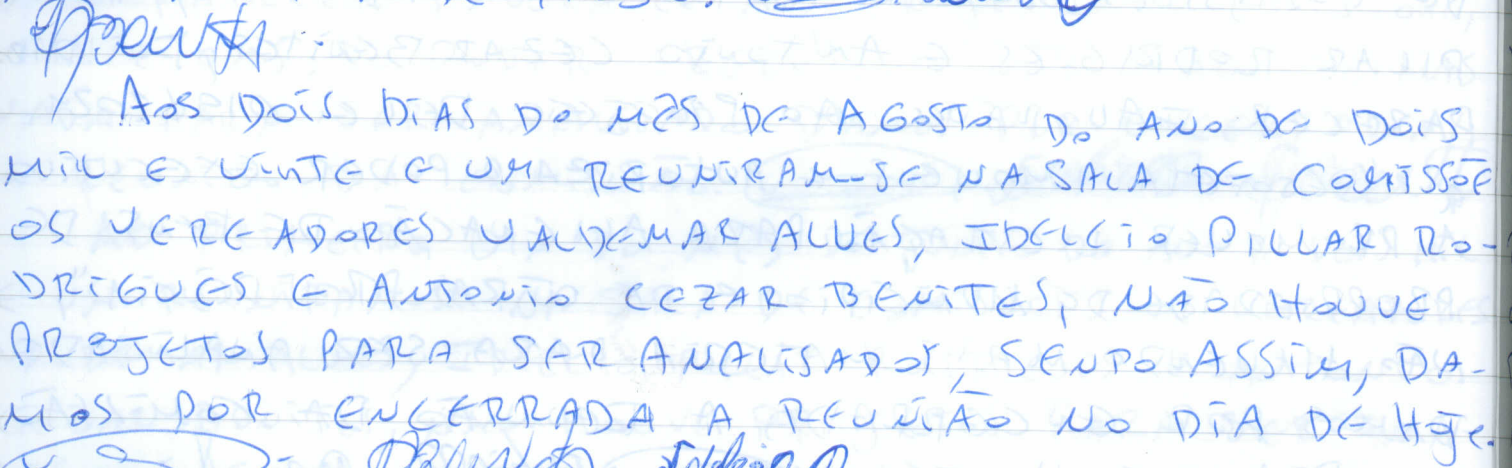 AOS DOIS DIAS DO MÊS DE AGOSTO DO ANO DE DOIS
MIL E VINTE E UM REUNIRAM-SE NA SALA DE COMISSÕE
OS VEREADORES VALDEMAR ALVES, IDELCIO PILLAR RO-
DRIGUES E ANTONIO CEZAR BENITES, NÃO HOUVE
PROJETOS PARA SER ANALISADOS, SENDO ASSIM, DA-
MOS POR ENCERRADA A REUNIÃO NO DIA DE HOJE.